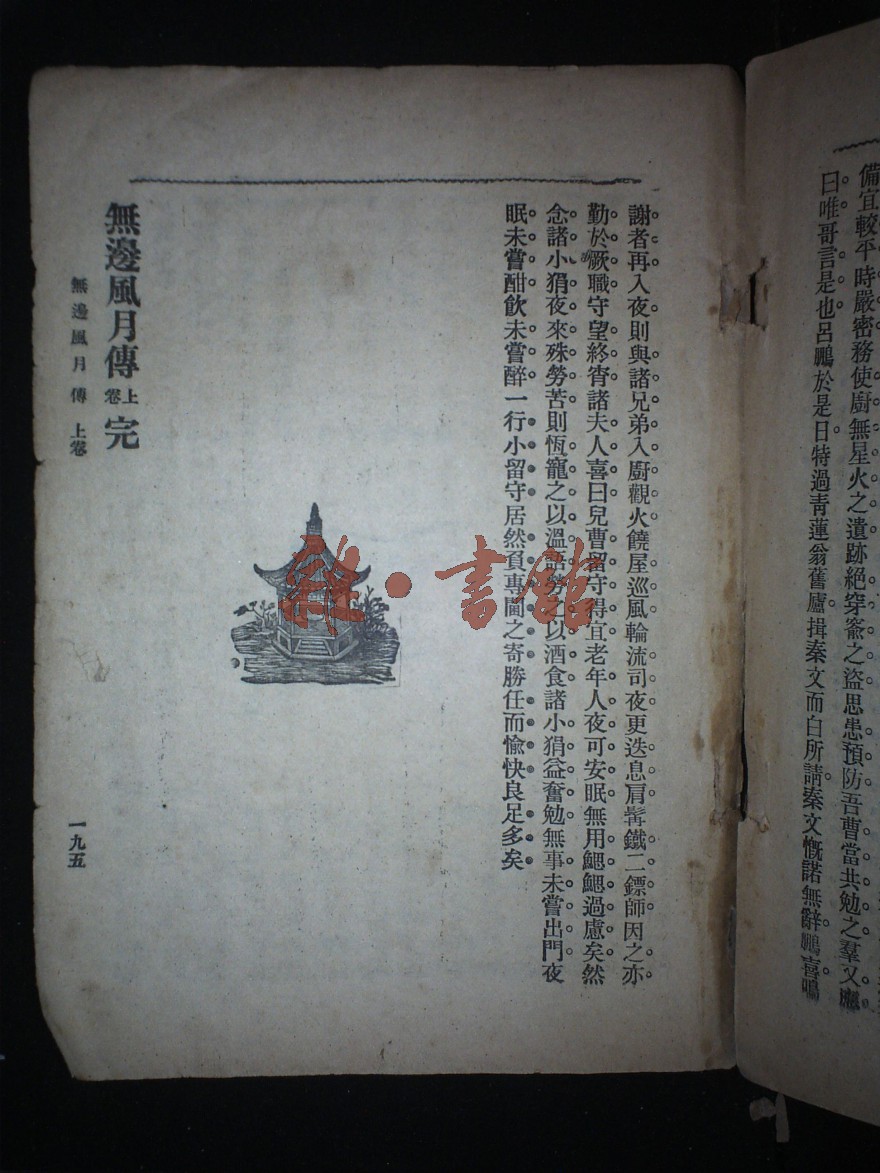 備宜較平時嚴密務使廚無星火之遺跡絕穿窬之盜思患預防吾曹當共勉之羣又應
曰唯哥言是也呂鵬於是日特過靑蓮翁舊廬揖秦文而白所請秦文慨諾無辭鵬喜鳴
謝者再入夜則與諸兄弟入廚觀火饒屋巡風輪流司夜更迭息肩髯鐵二鏢師因之亦
勤於厥職守望終宵諸夫人喜曰兒曹留守得宜老年人夜可安眠無用鰓鰓過慮矣然
念諸小狷夜來殊勞苦則恆寵之以溫語勞之以酒食諸小狷益奮勉無事未嘗出門夜
眠未嘗酣飲未嘗醉一行小留守居然負專閫之寄勝任而愉快良足多矣
無邊風月傳上卷完
無邊風月傳 上卷
一九五
雜·書館